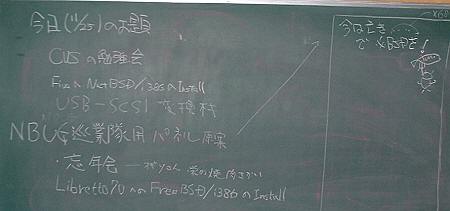 今日(11/25)のお題
CVSの勉強会
Free & NetBSD/i386のInstall
USB-SCSI変換機
NBUG巡業隊用 パネル原案
・忘年会 ―
Libretto70へのFreeBSD/i386のInstall
今は亡き
で *BSDを!